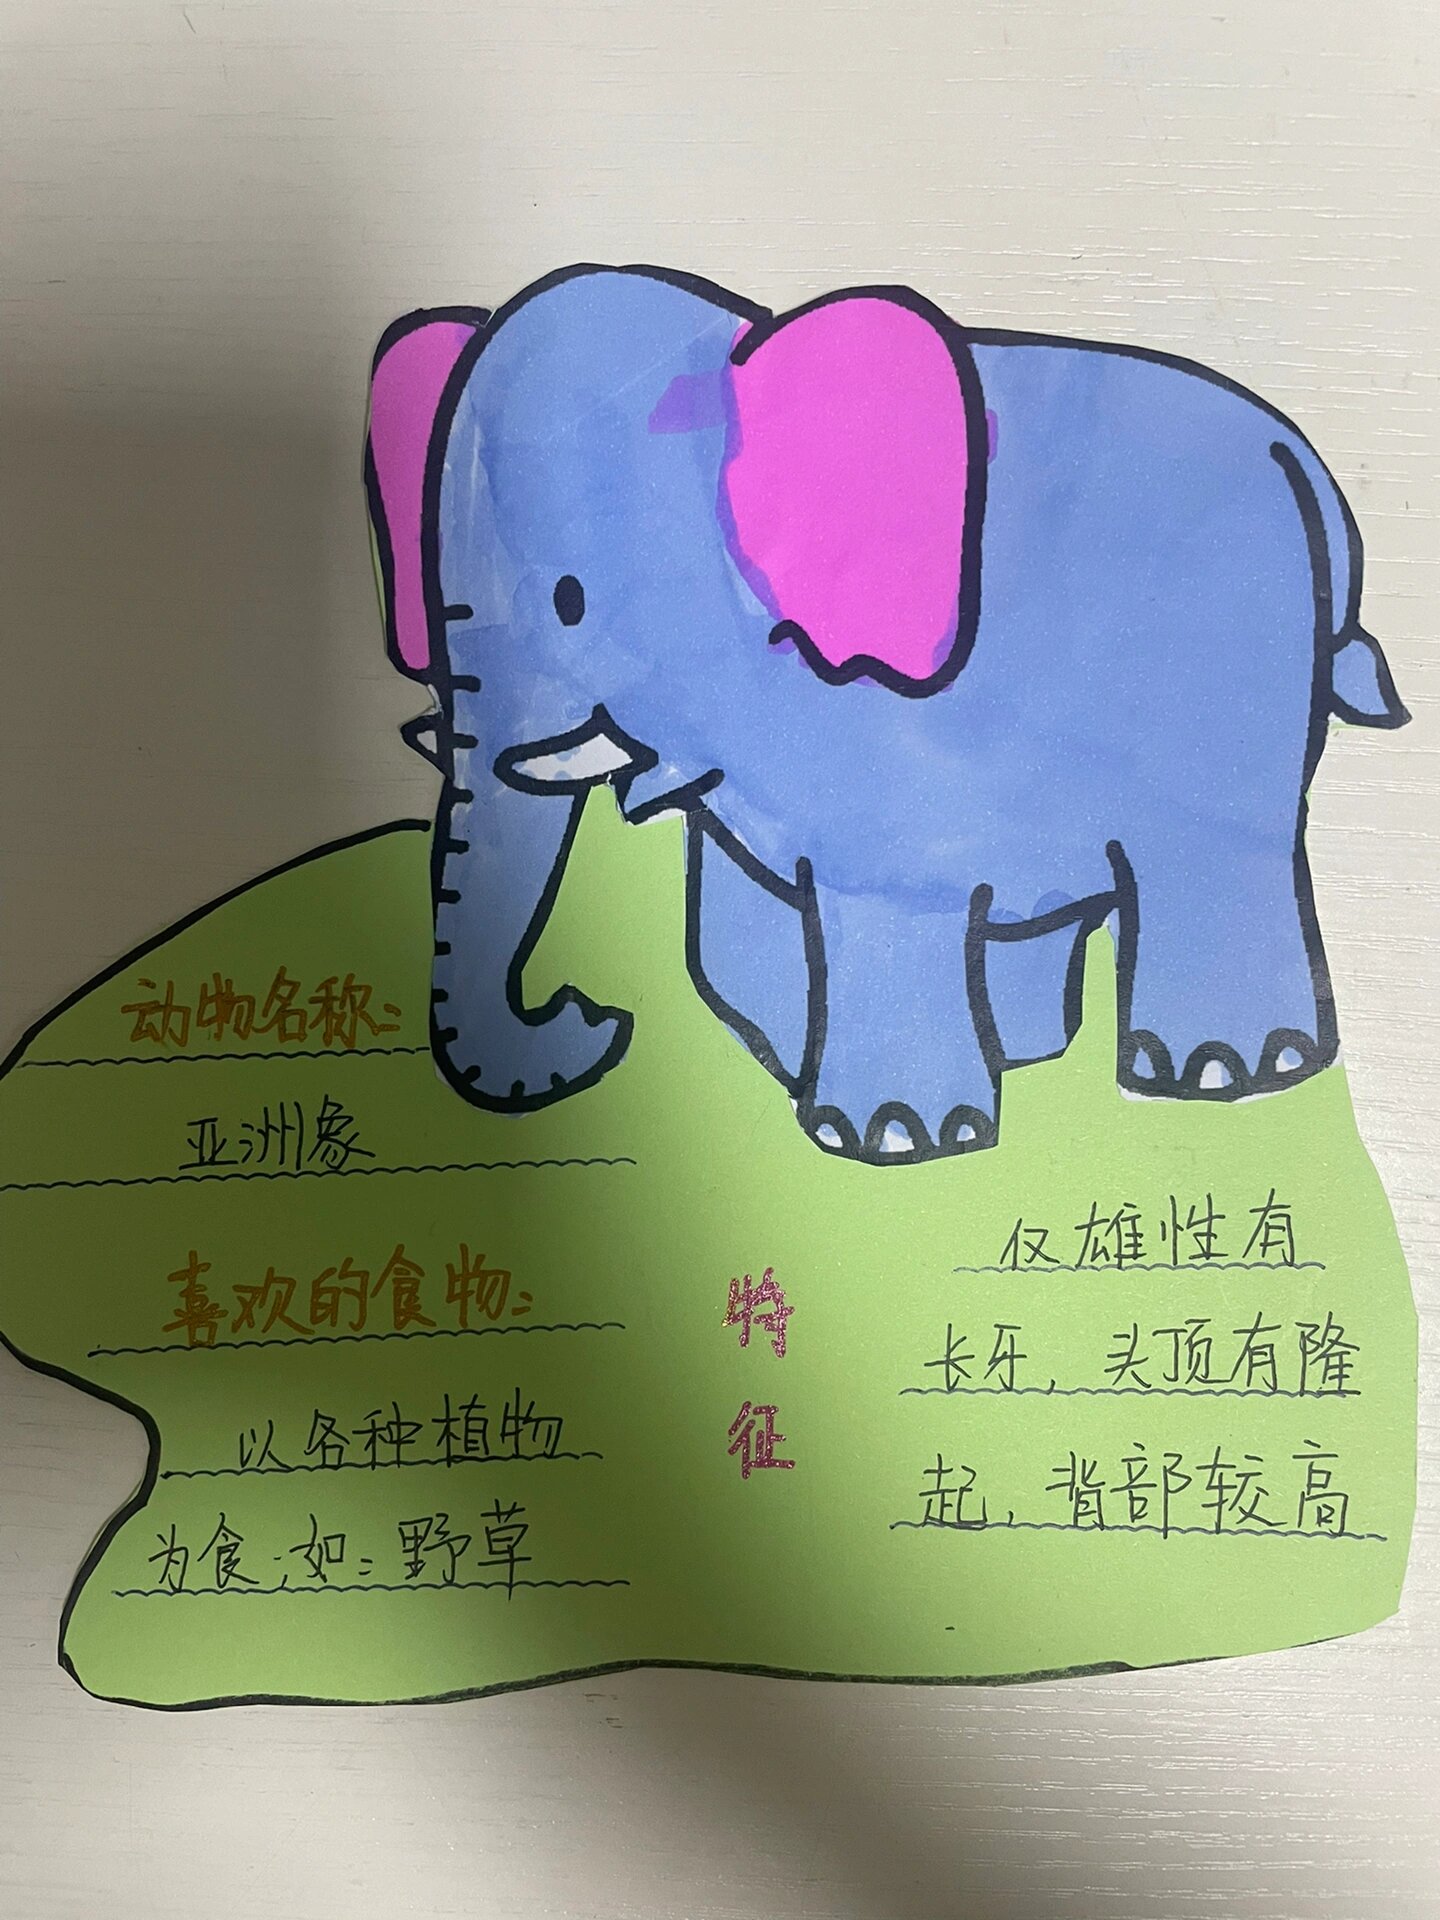 动物名称:
亚洲象
喜欢的食物:
以各种植物
为食,如:野草
特
征
仅雄性有
长牙,头顶有隆
起,背部较高